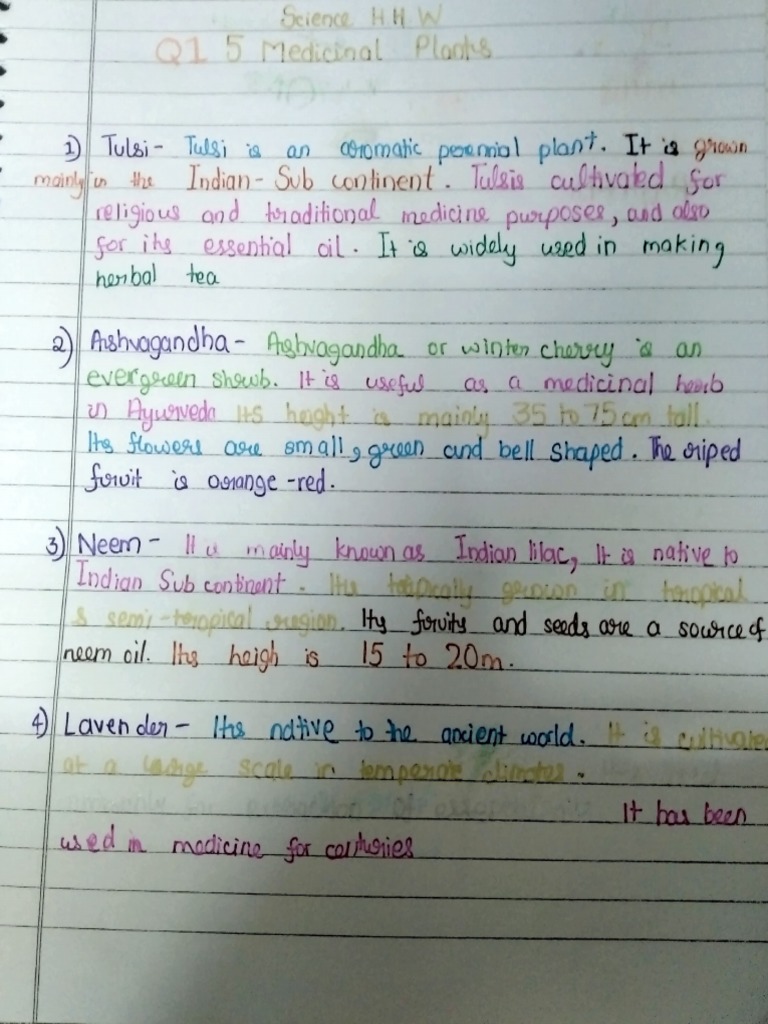 Science H H W
Q1 5 Medicinal Plants
1) Tulsi - Tulsi is an aromatic perennial plant. It is grown
mainly in the Indian - Sub continent. Tulsi is cultivated for
religious and traditional medicine purposes, and also
for its essential oil. It is widely used in making
herbal tea
2) Ashvagandha - Ashvagandha or winter cherry is an
evergreen shrub. It is useful as a medicinal herb
in Ayurveda Its height is mainly 35 to 75 cm tall.
Its flowers are small, green and bell shaped. The riped
fruit is orange - red.
3) Neem - It is mainly known as Indian lilac, It is native to
Indian Sub continent. Its typically grown in tropical
& semi-tropical region. Its fruits and seeds are a source of
neem oil. Its heigh is 15 to 20m.
4) Lavender - Its native to the ancient world. It is cultivated
at a large scale in temperate climates.
It has been
used in medicine for centuries